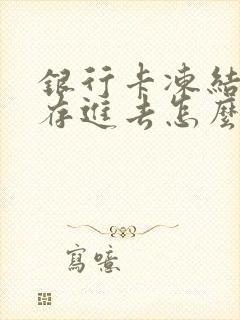 銀行卡凍結
存進去怎麼
寫噫